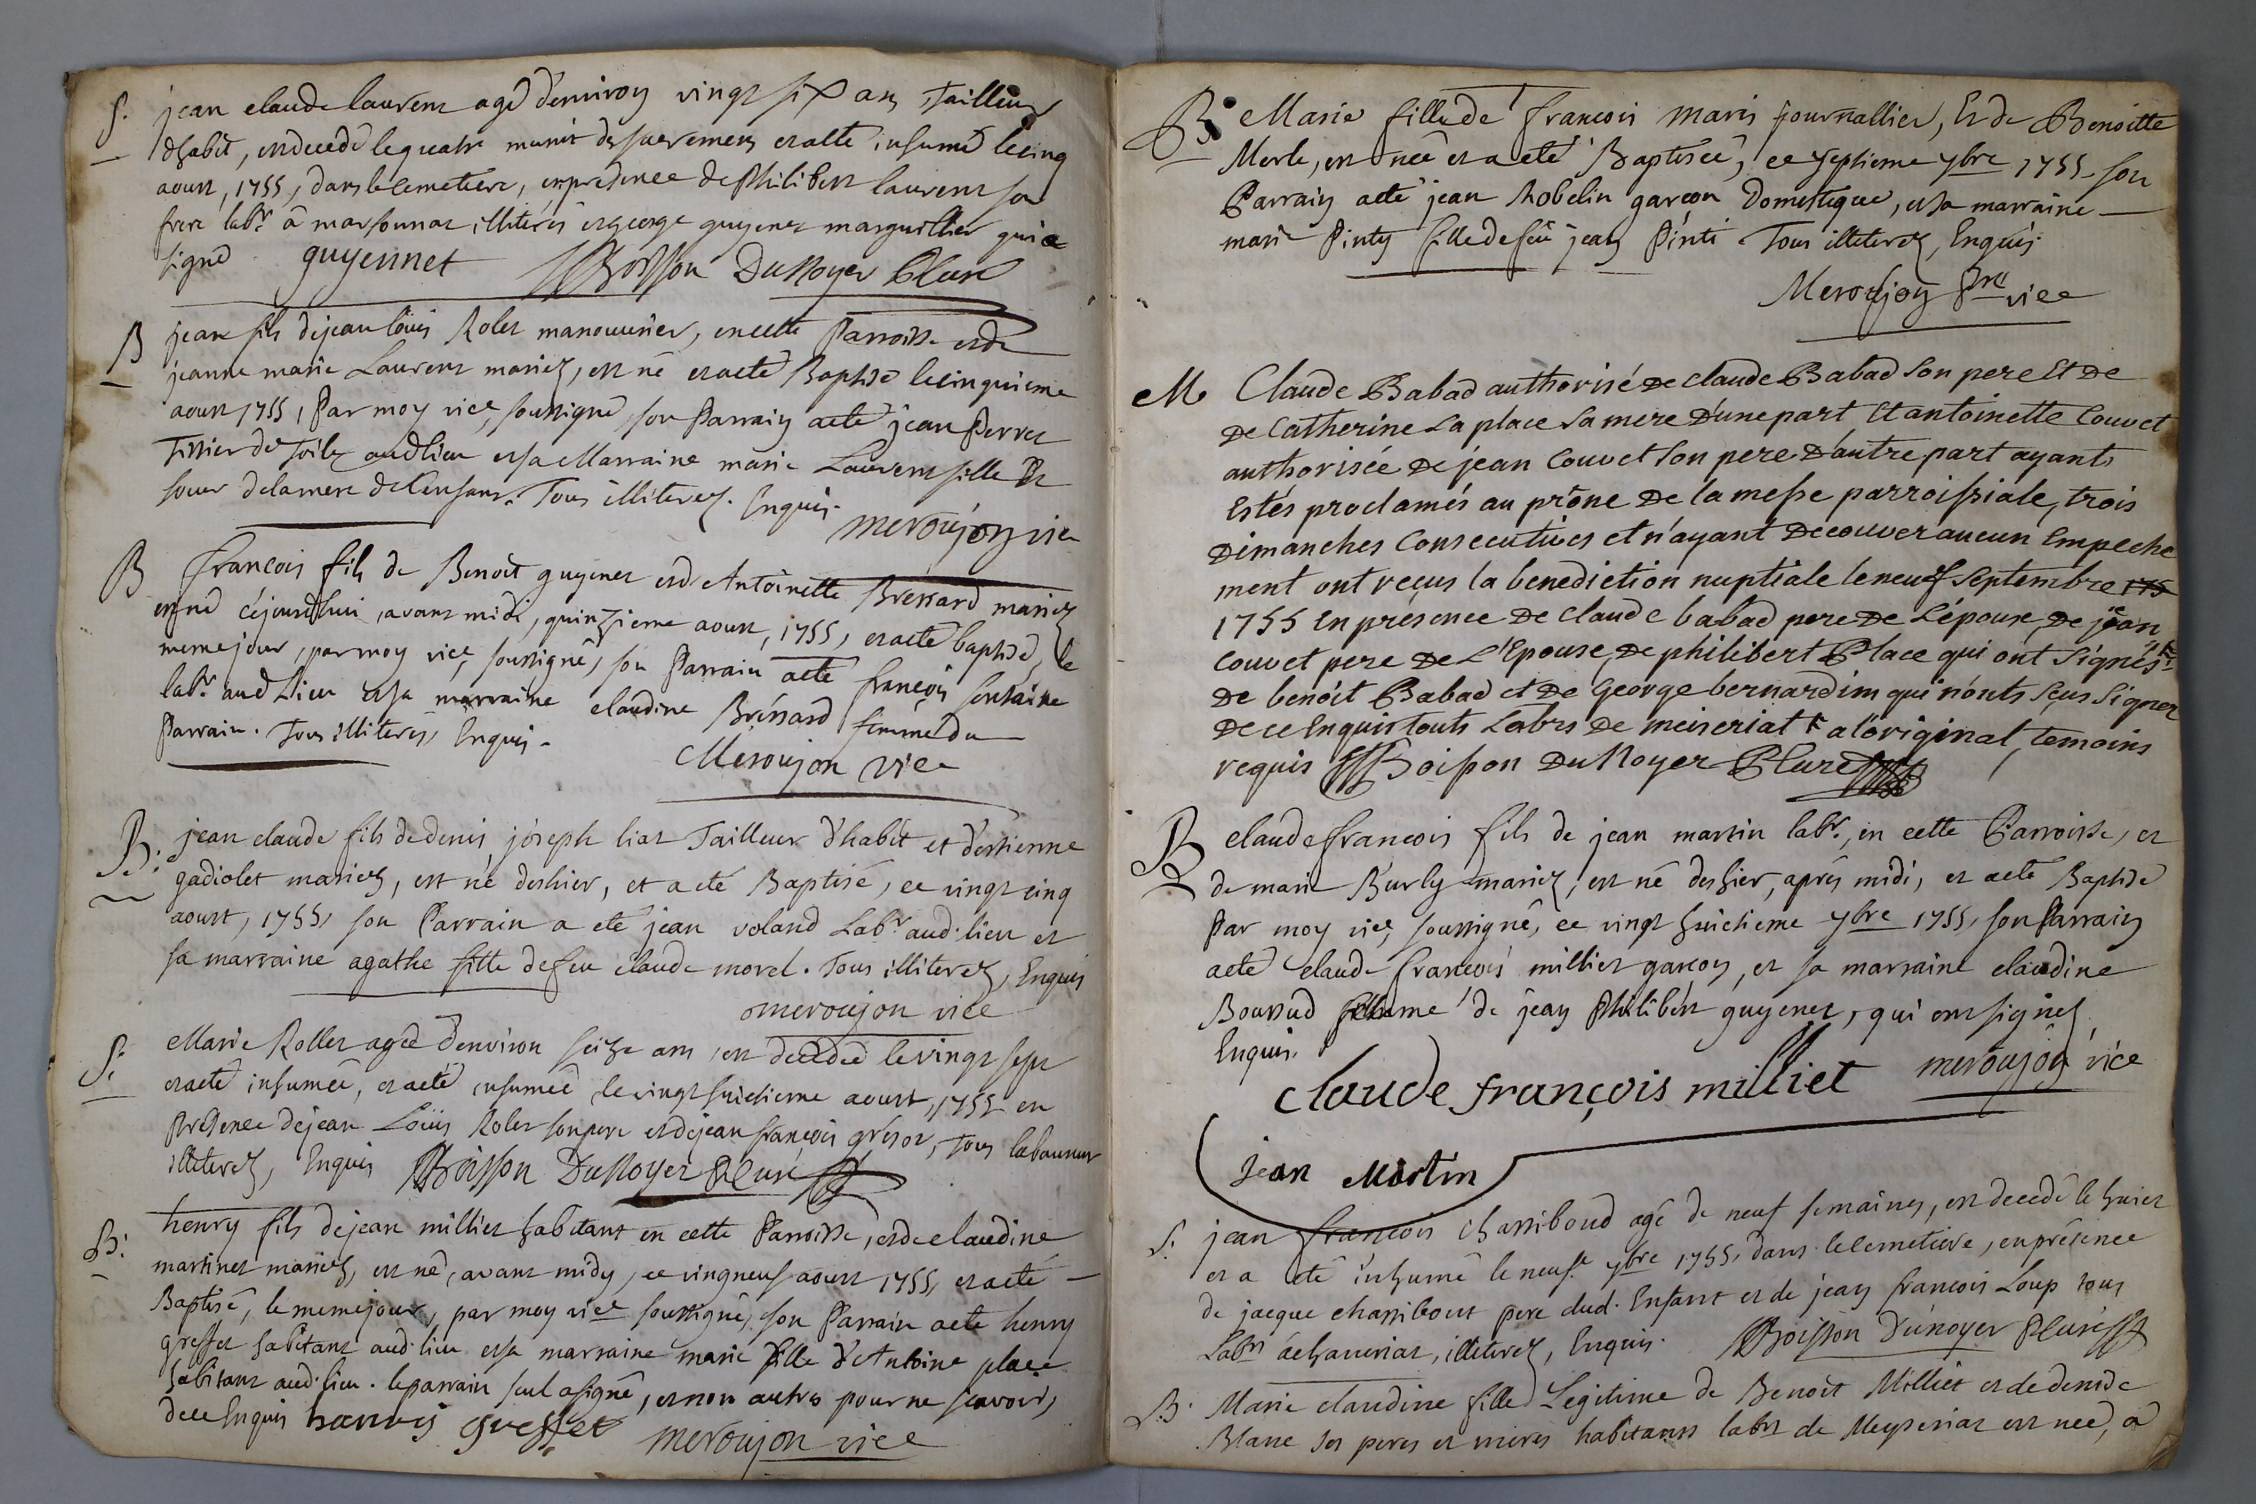 S. jean claude laurens agé d'environ vingt six ans, tailleur
d'habit, est decedé le quatre munit des sacremens et a été inhumé le cinq
aoust, 1755, dans le cemetiere, en presence de Philibert laurent son
frere labr. à marsonnas illiterés et george guyenet marguillier qui a
signé guyennet Boisson Dunoyer Curé
B jean fils de jean loüis Rolet manouvrier, en cette Parroisse et de
jeanne marie Laurent mariez, est né et a eté Baptisé le cinquieme
aoust 1755, Par moy vice soussigné, son Parrain a eté jean Perret
Tissier de toile aud lieu et sa Marraine marie Laurent fille et
soeur de la mere de l'enfant. Tous illiterez. Enquis.
meroujon vice
B francois fils de Benoit guyenet et de Antoinette Bressard mariez
est né cejourd'hui, avant midi, quinzieme aoust, 1755, et a eté baptisé, le
meme jour, par moy vice, soussigné, son Parrain a eté francois fontaine
labr. aud Lieu et sa marraine claudine Bressard femme du
Parrain. Tous illiterés, Enquis.
Meroujon vice
B: jean claude fils de denis joseph liat Tailleur d'habit et d'estienne
gadiolet mariez, est né deshier, et a eté Baptisé, ce vingt cinq
aoust, 1755, son Parrain a eté jean voland Labr. aud. lieu et
sa marraine agathe fille de feu claude morel. Tous illiterez, Enquis
meroujon vice
S: Marie Rollet agée d'environ seize ans, est decedée le vingt sept
et a eté inhumée, et a eté inhumée le vingt huictieme aoust, 1755 en
presence de jean Loüis Rolet son pere et de jean francois gresor, tous laboureur
illiterez, Enquis Boisson Dunoyer Curé
B: henry fils de jean milliet habitant en cette Parroisse, et de claudine
martinet mariez, est né, avant midy, ce vingneuf aoust 1755, et a eté
Baptisé, le meme jour, par moy vice soussigné, son Parrain a eté henry
greffet habitant aud. lieu et sa marraine marie fille d'Antoine place
habitant aud. lieu. le parrain seul a signé, et non autres pour ne sçavoir,
de ce Enquis hanris Greffet meroujon vice
B: Marie fille de francois maris journallier, Et de Benoitte
Merle, est née et a eté Baptisée, ce septieme 7bre 1755 son
Parrain a eté jean Robelin garcon Domestique, et sa marraine
marie Pinty fille de feu jean Pinti Tous illiterez, Enquis.
Meroujon Pre vice
M. Claude Babad authorisé de claude Babad son pere Et de
de Catherine La place sa mere d'une part Et antoinette Couvet
authorisée de jean Couvet son pere d'autre part ayants
Estés proclamés au prône de la messe parroissiale, trois
dimanches Consecutives et n'ayant decouver aucun Empeche
ment ont reçus la benediction nuptiale le neuf Septembre 175
1755 En présence de claude babad pere de L'époux, de jean
Couvet pere de L'Epouse, de philibert Place qui ont signés
de benoit Babad et de George bernardim qui n'onts seus signer
de ce Enquis touts Labrs de meiseriat a l'original, temoins
requis Boisson Dunoyer Curé
B claude francois fils de jean martin labr., en cette Parroisse, et
de marie Burly mariez, est né deshier, aprés midi, et a eté Baptisé
Par moy vice, soussigné, ce vingt huictieme 7bre 1755, son Parrain
a eté claude francois milliet garcon, et sa marraine claudine
Bouvad femme de jean Philibert guyenet, qui ont signez
Enquis.
claude françois milliet meroujon vice
jean Martin
S. jean francois Chassiboud agé de neuf semaines, est decedé le huict
et a eté inhumé le neufe 7bre 1755, dans le cemetiere, en présence
de jacque chassibout pere dud. Enfant et de jean francois Loup tous
Labrs illiterez, Enquis. Boisson Dunoyer Curé
B. Marie claudine fille Legitime de Benoit Milliet et de denise
Blanc ses peres et meres habitants labrs de Meyseriat est née, a